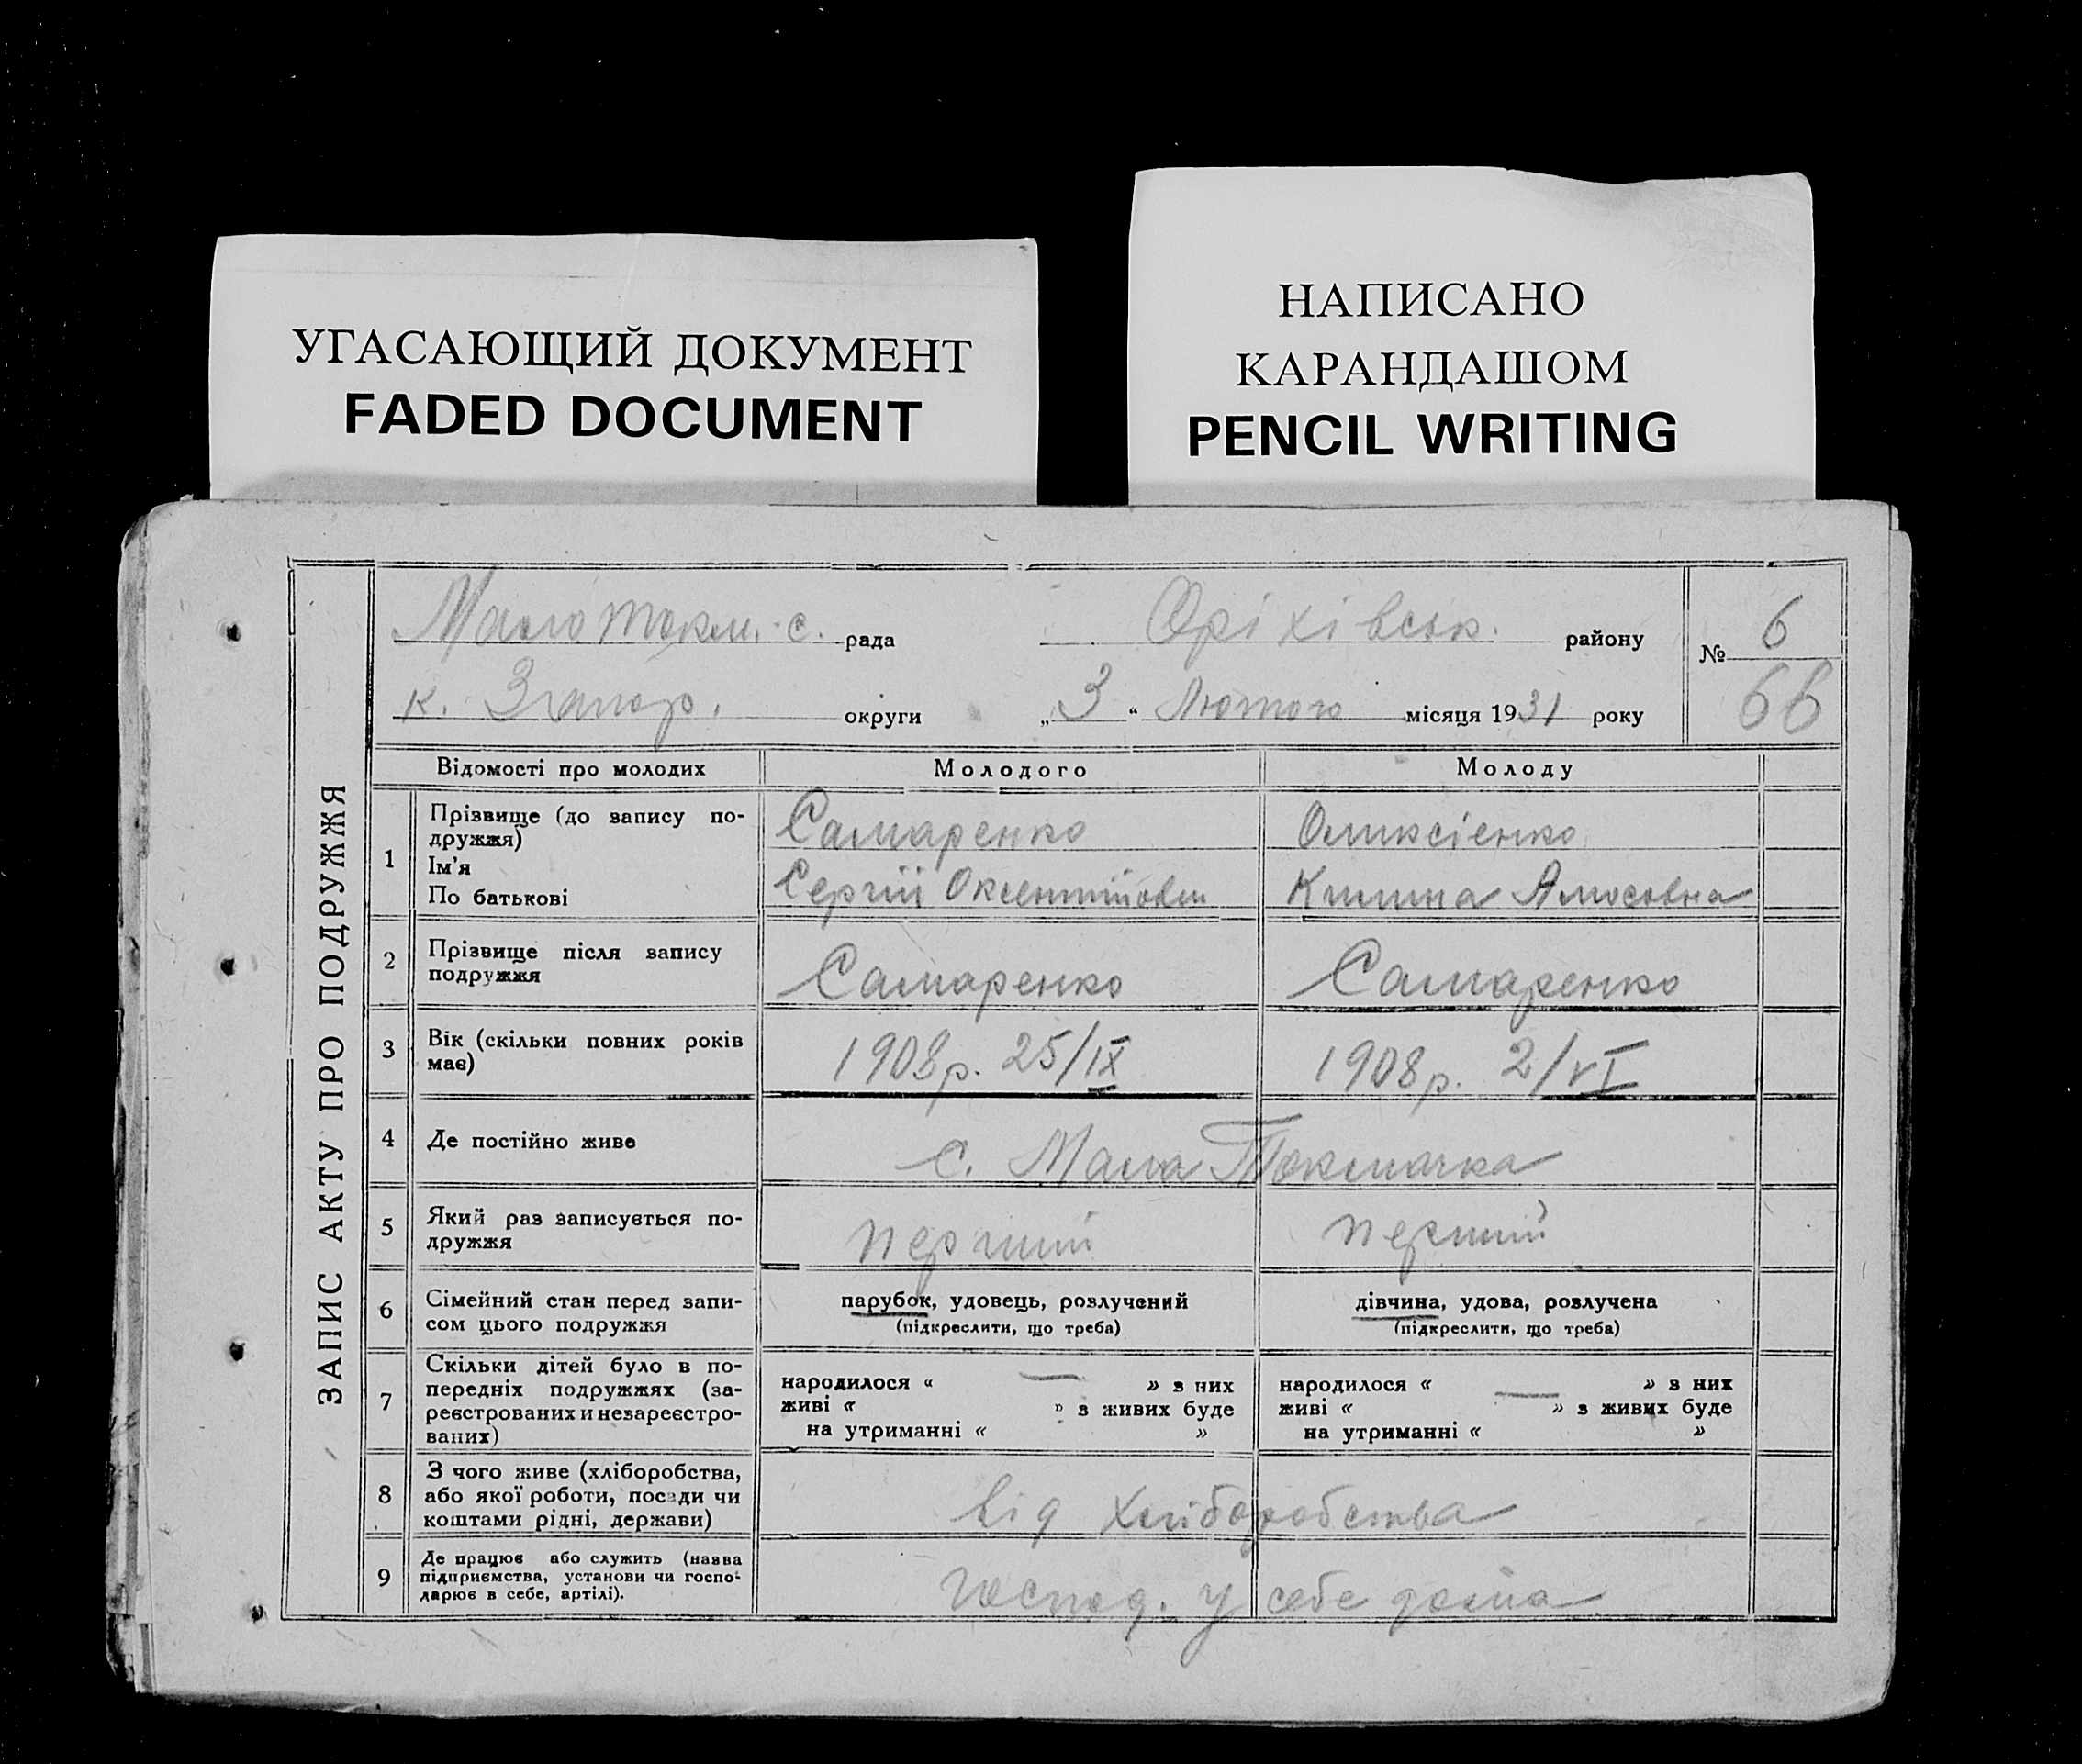 УГАСАЮЩИЙ ДОКУМЕНТ
FADED DOCUMENT
НАПИСАНО
КАРАНДАШОМ
PENCIL WRITING
ЗАПИС АКТУ ПРО ПОДРУЖЖЯ
Малотокм. с. рада Оріхівськ. району № 6
к. Запор. округи „3“ Лютого місяця 1931 року 66
Відомості про молодих Молодого Молоду
1 Прізвище (до запису по-
дружжя) Самаренко Оликсієнко
Ім'я
По батькові Сергій Оксентійович Килина Амосовна
2 Прізвище після запису
подружжя Самаренко Самаренко
3 Вік (скільки повних років
має) 1908р. 25/IX 1908р. 2/VI
4 Де постійно живе с. Мала Токмачка
5 Який раз записується по-
дружжя перший перший
6 Сімейний стан перед запи-
сом цього подружжя
парубок, удовець, розлучений
(підкреслити, що треба)
дівчина, удова, розлучена
(підкреслити, що треба)
7 Скільки дітей було в по-
передніх подружжях (за-
реєстрованих и незареєстро-
ваних)
народилося « — » з них
живі « » з живих буде
на утриманні « »
народилося « — » з них
живі « » з живих буде
на утриманні « »
8 З чого живе (хліборобства,
або якої роботи, посади чи
коштами рідні, держави)
від хліборобства
9 Де працює або служить (назва
підприємства, установи чи госпо-
дарює в себе, артілі).
господ. у себе дома